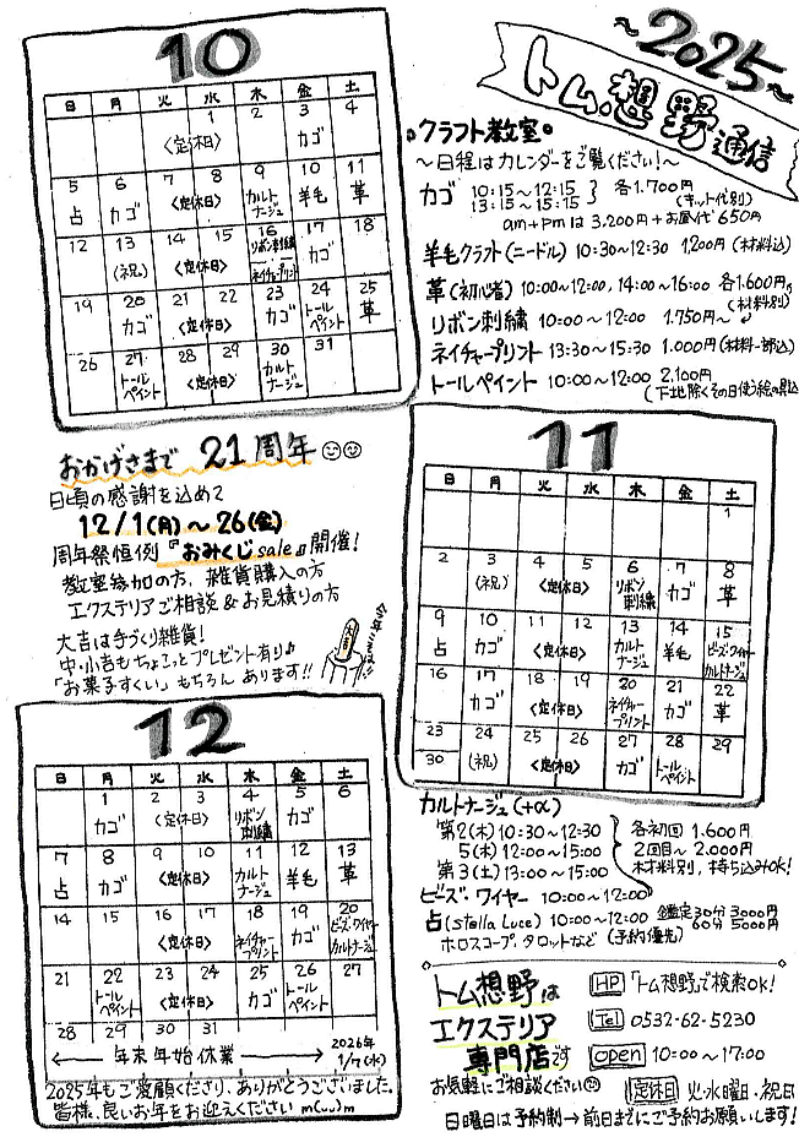 ～2025～
トム想野通信
10
日 月 火 水 木 金 土
1 2 3 4
〈定休日〉 カゴ
5 6 7 8 9 10 11
占 カゴ 〈定休日〉 カルトナージュ 羊毛 革
12 13 14 15 16 17 18
(祝) 〈定休日〉 リボン刺繍 ネイチャープリント カゴ
19 20 21 22 23 24 25
カゴ 〈定休日〉 カゴ トールペイント 革
26 27 28 29 30 31
トールペイント 〈定休日〉 カルトナージュ
クラフト教室
～日程はカレンダーをご覧ください!～
カゴ 10:15～12:15 各1.700円
13:15～15:15 (キット代別)
am+pmは3,200円+お昼代650円
羊毛クラフト(ニードル) 10:30～12:30 1,200円(材料込)
革(初心者) 10:00～12:00, 14:00～16:00 各1.600円
(材料別)
リボン刺繍 10:00～12:00 1.750円～
ネイチャープリント 13:30～15:30 1.000円(材料一部込)
トールペイント 10:00～12:00 2,100円
(下地除くその日使う絵の具込
おかげさまで 21周年
日頃の感謝を込めて
12/1(月)～26(金)
周年祭恒例『おみくじsale』開催!
教室参加の方、雑貨購入の方
エクステリアご相談&お見積りの方
大吉は手づくり雑貨!
中・小吉もちょこっとプレゼント有り♪
「お菓子すくい」もちろんあります!!
大吉
11
日 月 火 水 木 金 土
1
2 3 4 5 6 7 8
(祝) 〈定休日〉 リボン刺繍 カゴ 革
9 10 11 12 13 14 15
占 カゴ 〈定休日〉 カルトナージュ 羊毛 ビーズ・ワイヤー カルトナージュ
16 17 18 19 20 21 22
カゴ 〈定休日〉 ネイチャープリント カゴ 革
23 24 25 26 27 28 29
30 (祝) 〈定休日〉 カゴ トールペイント
12
日 月 火 水 木 金 土
1 2 3 4 5 6
カゴ 〈定休日〉 リボン刺繍 カゴ
7 8 9 10 11 12 13
占 カゴ 〈定休日〉 カルトナージュ 羊毛 革
14 15 16 17 18 19 20
〈定休日〉 ネイチャープリント カゴ ビーズ・ワイヤー カルトナージュ
21 22 23 24 25 26 27
トールペイント 〈定休日〉 カゴ トールペイント
28 29 30 31
年末年始休業 2026年1/7(水)
2025年もご愛顧くださり、ありがとうございました。
皆様、良いお年をお迎えください m(_ _)m
カルトナージュ(+α)
第2(木) 10:30～12:30 各初回 1.600円
5(木) 12:00～15:00 2回目～ 2.000円
第3(土) 13:00～15:00 材料別、持ち込みOK!
ビーズ・ワイヤー 10:00～12:00
占(stella Luce) 10:00～12:00 鑑定30分 3000円
60分 5000円
ホロスコープ、タロットなど(予約優先)
トム想野は
エクステリア
専門店です
お気軽にご相談ください
HP 「トム想野」で検索OK!
Tel 0532-62-5230
open 10:00～17:00
定休日 火・水曜日・祝日
日曜日は予約制→前日までにご予約お願いします!